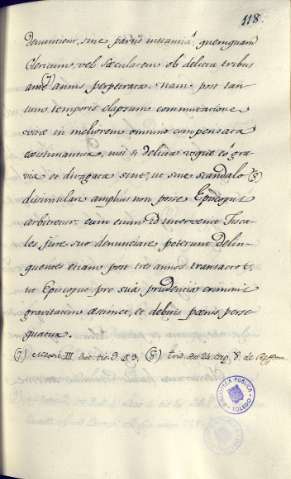 118.
denuncient, sine partis instantiâ, quemquam
Clericum, vel sæcularem ob delicta tribus
ante annis perpetrata: nam post tan-
tum temporis elapsum commutatione
vitæ in meliorem omnino compensata
existimantur, nisi delicta atque
via et ut sine scandalo
dissimulari amplius non posse Episcopus
arbitretur: cum enim id intervenit Fisca-
les jure suo denunciare poterunt delin-
quentes etiam post tres annos transactos,
ut Episcopus pro suâ prudentiâ criminis
gravitatem animet, et debitis pœnis perse-
quatur.
III. tit. 8 de
BIBLIOTECA PUBLICA
TOLEDO